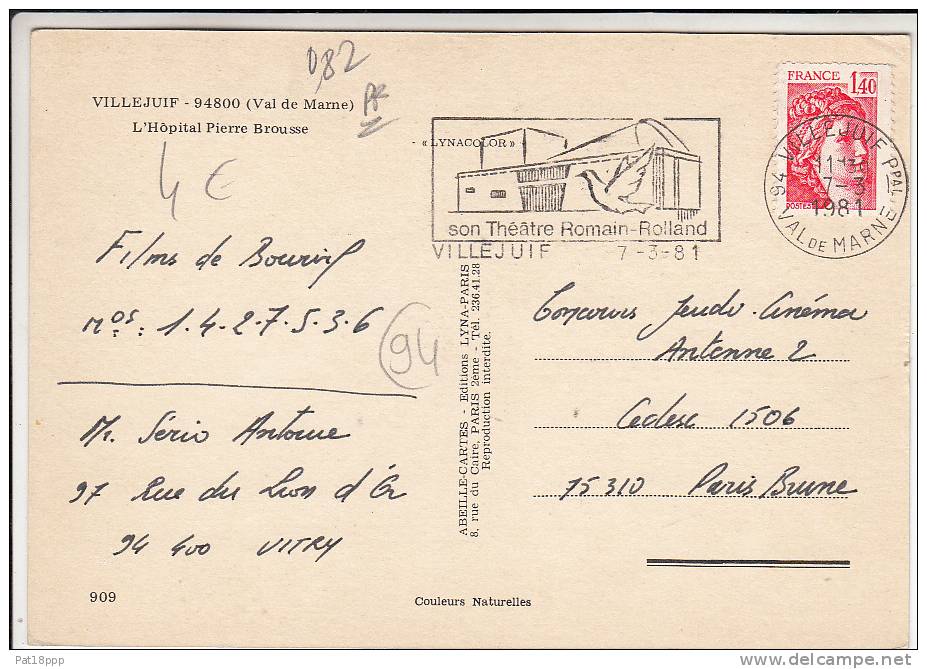 0,82
PK
VILLEJUIF - 94800 (Val de Marne)
L'Hôpital Pierre Brousse
4 €
Films de Bourvil
Nos: 1.4.2.7.5.3.6
94
Mr. Sério Antoine
97 Rue du Lion d'Or
94 400 VITRY
909
« LYNACOLOR »
son Théâtre Romain-Rolland
VILLEJUIF 7-3-81
FRANCE 1,40
POSTES
94 VILLEJUIF PPAL
7-3
1981
VAL DE MARNE
ABEILLE-CARTES - Editions LYNA-PARIS
8, rue du Caire, PARIS 2ème - Tél. 236.41.28
Reproduction interdite.
Concours Jeudi-Cinéma
Antenne 2
Cedex 1506
75310 Paris Brune
Couleurs Naturelles
Pat18ppp
©delcampe.net